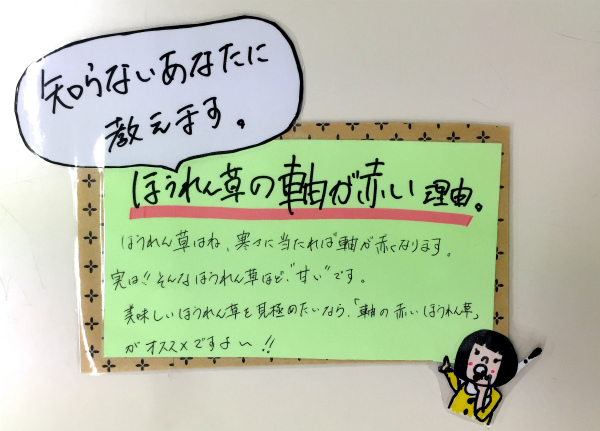 知らないあなたに
教えます。
ほうれん草の軸が赤い理由。
ほうれん草はね、寒さに当たれば軸が赤くなります。
実は!!そんなほうれん草ほど、"甘い"です。
美味しいほうれん草を見極めたいなら、「軸の赤いほうれん草」
がオススメですよ〜!!